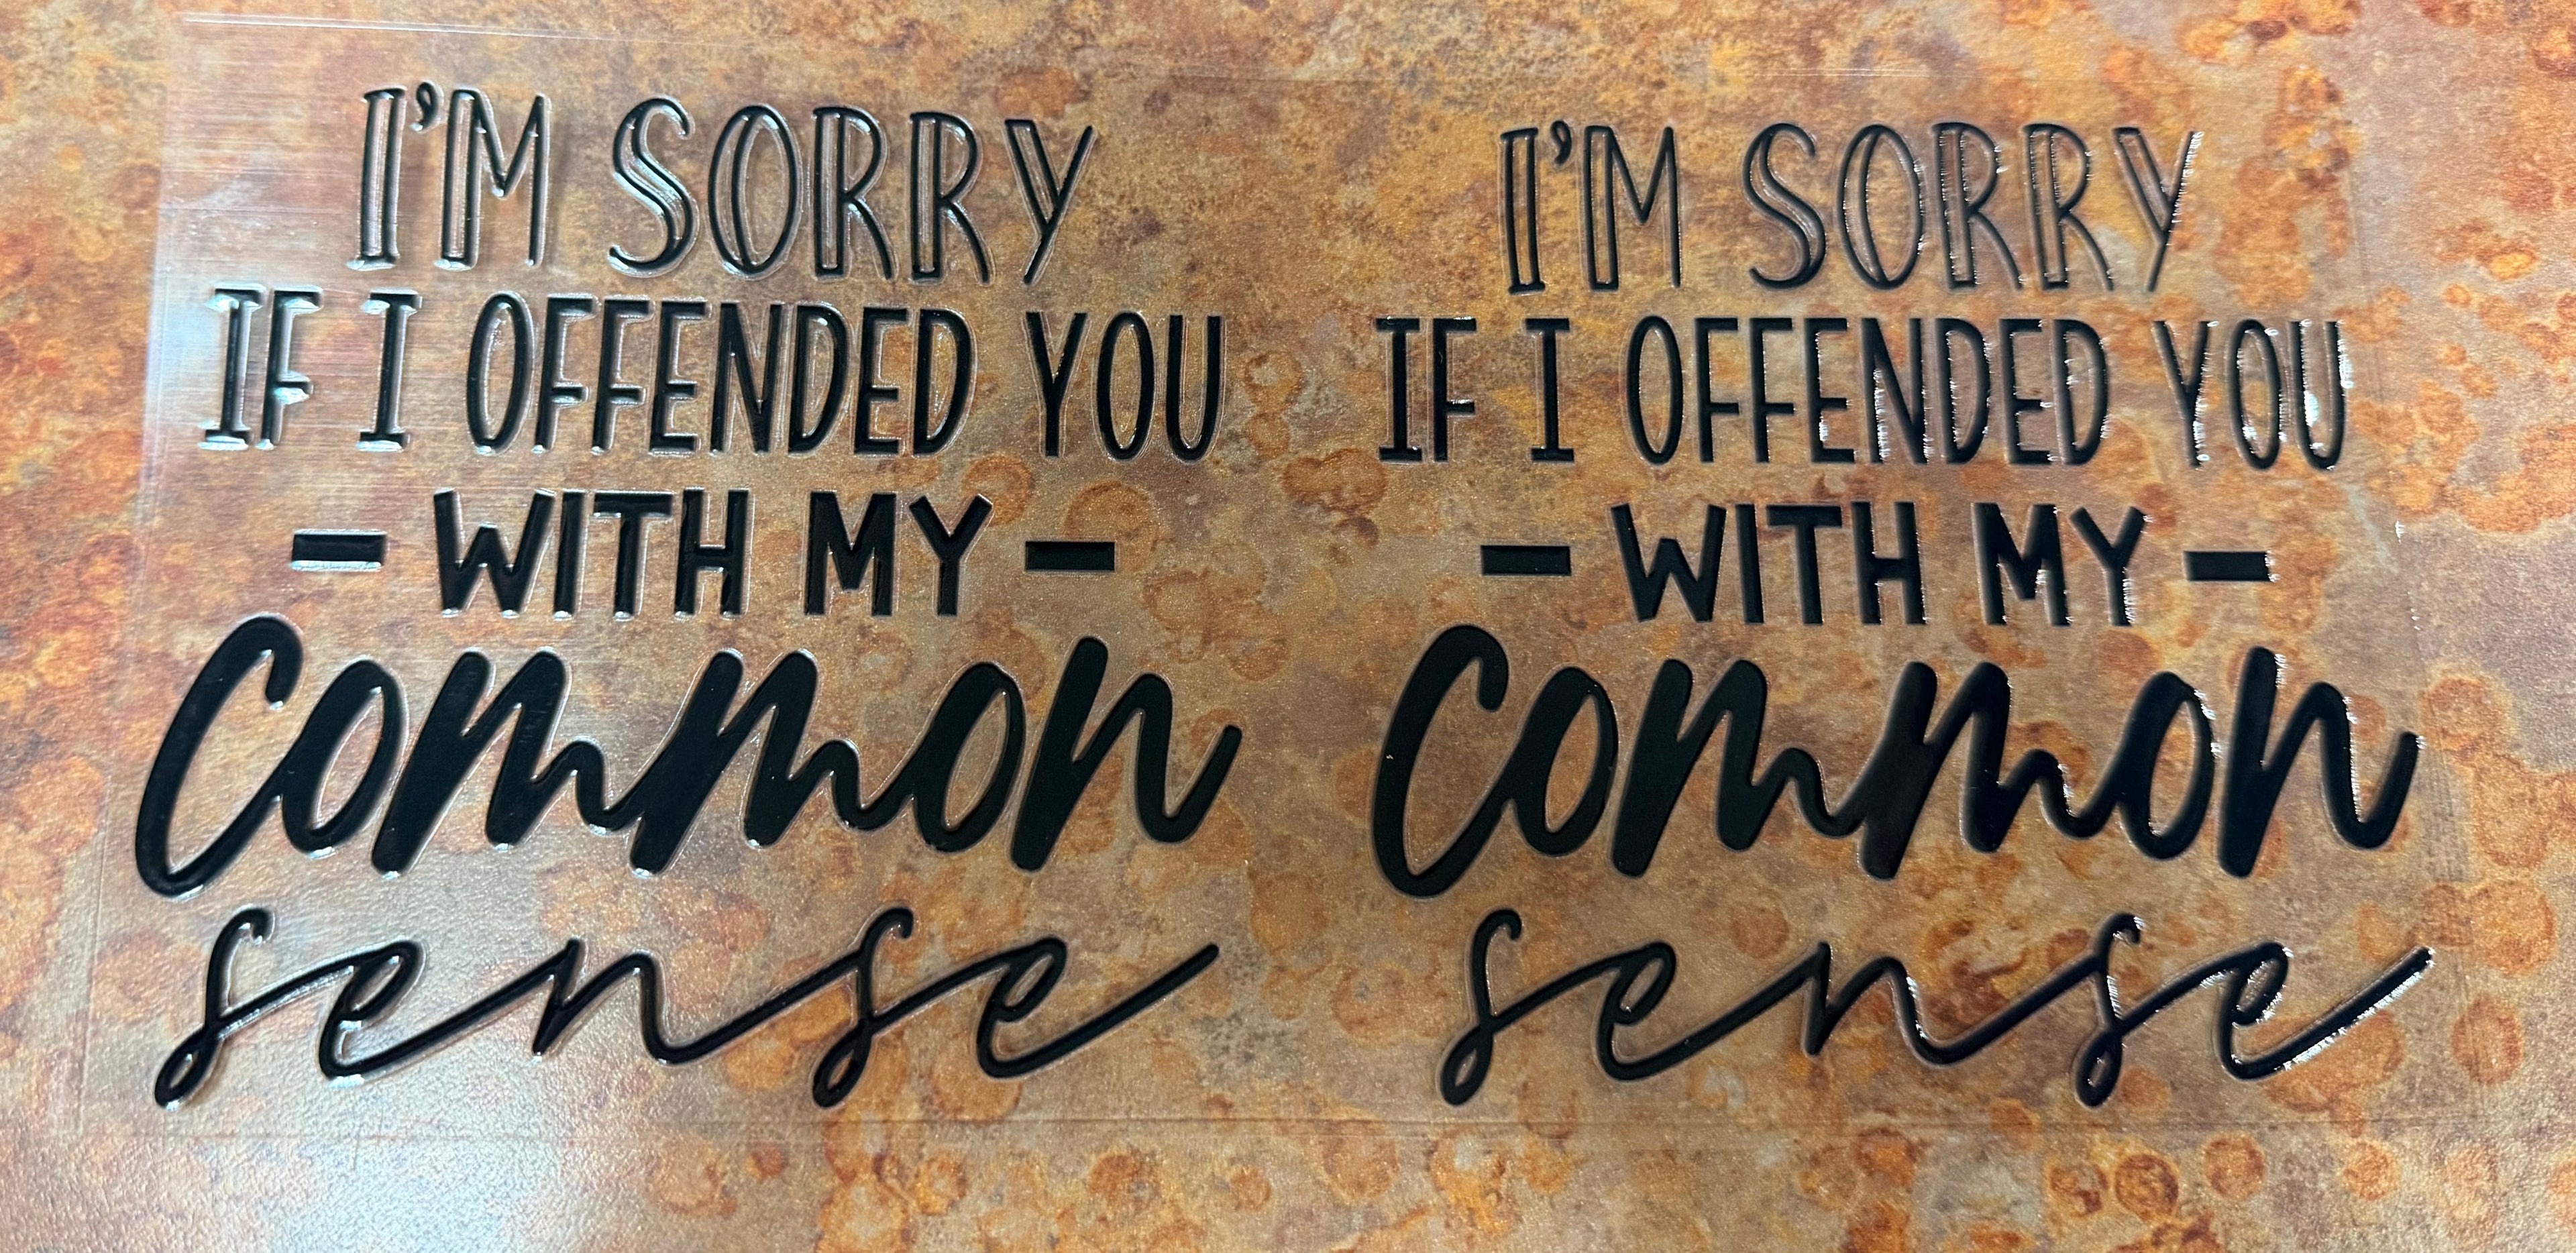 I'M SORRY
IF I OFFENDED YOU
- WITH MY -
Common
sense
I'M SORRY
IF I OFFENDED YOU
- WITH MY -
Common
sense